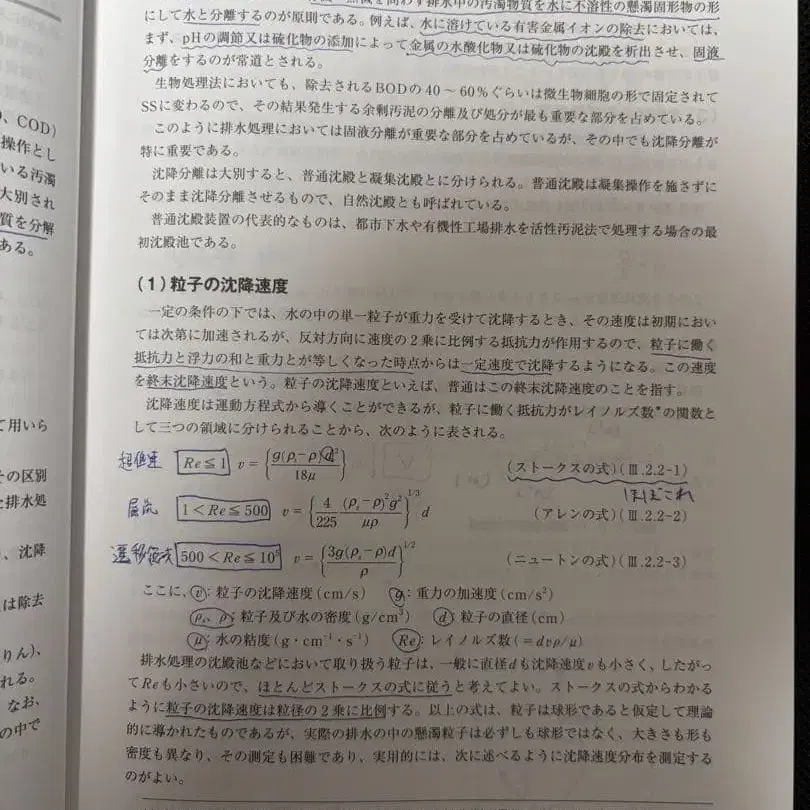 問わず排水中の汚濁物質を水に不溶性の懸濁固形物の形
にして水と分離するのが原則である。例えば、水に溶けている有害金属イオンの除去においては、
まず、pHの調節又は硫化物の添加によって金属の水酸化物又は硫化物の沈殿を析出させ、固液
分離をするのが常道とされる。
生物処理法においても、除去されるBODの40〜60%ぐらいは微生物細胞の形で固定されて
SSに変わるので、その結果発生する余剰汚泥の分離及び処分が最も重要な部分を占めている。
このように排水処理においては固液分離が重要な部分を占めているが、その中でも沈降分離が
特に重要である。
沈降分離は大別すると、普通沈殿と凝集沈殿とに分けられる。普通沈殿は凝集操作を施さずに
そのまま沈降分離させるもので、自然沈殿とも呼ばれている。
普通沈殿装置の代表的なものは、都市下水や有機性工場排水を活性汚泥法で処理する場合の最
初沈殿池である。
(1)粒子の沈降速度
一定の条件の下では、水の中の単一粒子が重力を受けて沈降するとき、その速度は初期におい
ては次第に加速されるが、反対方向に速度の2乗に比例する抵抗力が作用するので、粒子に働く
抵抗力と浮力の和と重力とが等しくなった時点からは一定速度で沈降するようになる。この速度
を終末沈降速度という。粒子の沈降速度といえば、普通はこの終末沈降速度のことを指す。
沈降速度は運動方程式から導くことができるが、粒子に働く抵抗力がレイノルズ数*の関数と
して三つの領域に分けられることから、次のように表される。
超低速 Re≦1 v={g(ρs−ρ)d²/18μ} (ストークスの式)(Ⅲ.2.2-1)
ほぼこれ
層流 1<Re≦500 v={4/225 (ρs−ρ)²g²/μρ}^1/3 d (アレンの式)(Ⅲ.2.2-2)
500<Re≦10⁵ v={3g(ρs−ρ)d/ρ}^1/2 (ニュートンの式)(Ⅲ.2.2-3)
ここに、v:粒子の沈降速度(cm/s) g:重力の加速度(cm/s²)
ρs、ρ:粒子及び水の密度(g/cm³) d:粒子の直径(cm)
μ:水の粘度(g・cm⁻¹・s⁻¹) Re:レイノルズ数(=dvρ/μ)
排水処理の沈殿池などにおいて取り扱う粒子は、一般に直径dも沈降速度vも小さく、したがっ
てReも小さいので、ほとんどストークスの式に従うと考えてよい。ストークスの式からわかる
ように粒子の沈降速度は粒径の2乗に比例する。以上の式は、粒子は球形であると仮定して理論
的に導かれたものであるが、実際の排水の中の懸濁粒子は必ずしも球形ではなく、大きさも形も
密度も異なり、その測定も困難であり、実用的には、次に述べるように沈降速度分布を測定する
のがよい。
、COD)
操作とし
いる汚濁
大別され
質を分解
ある。
て用いら
その区別
と排水処
、沈降
は除去
りん)、
れる。
なお、
の中で